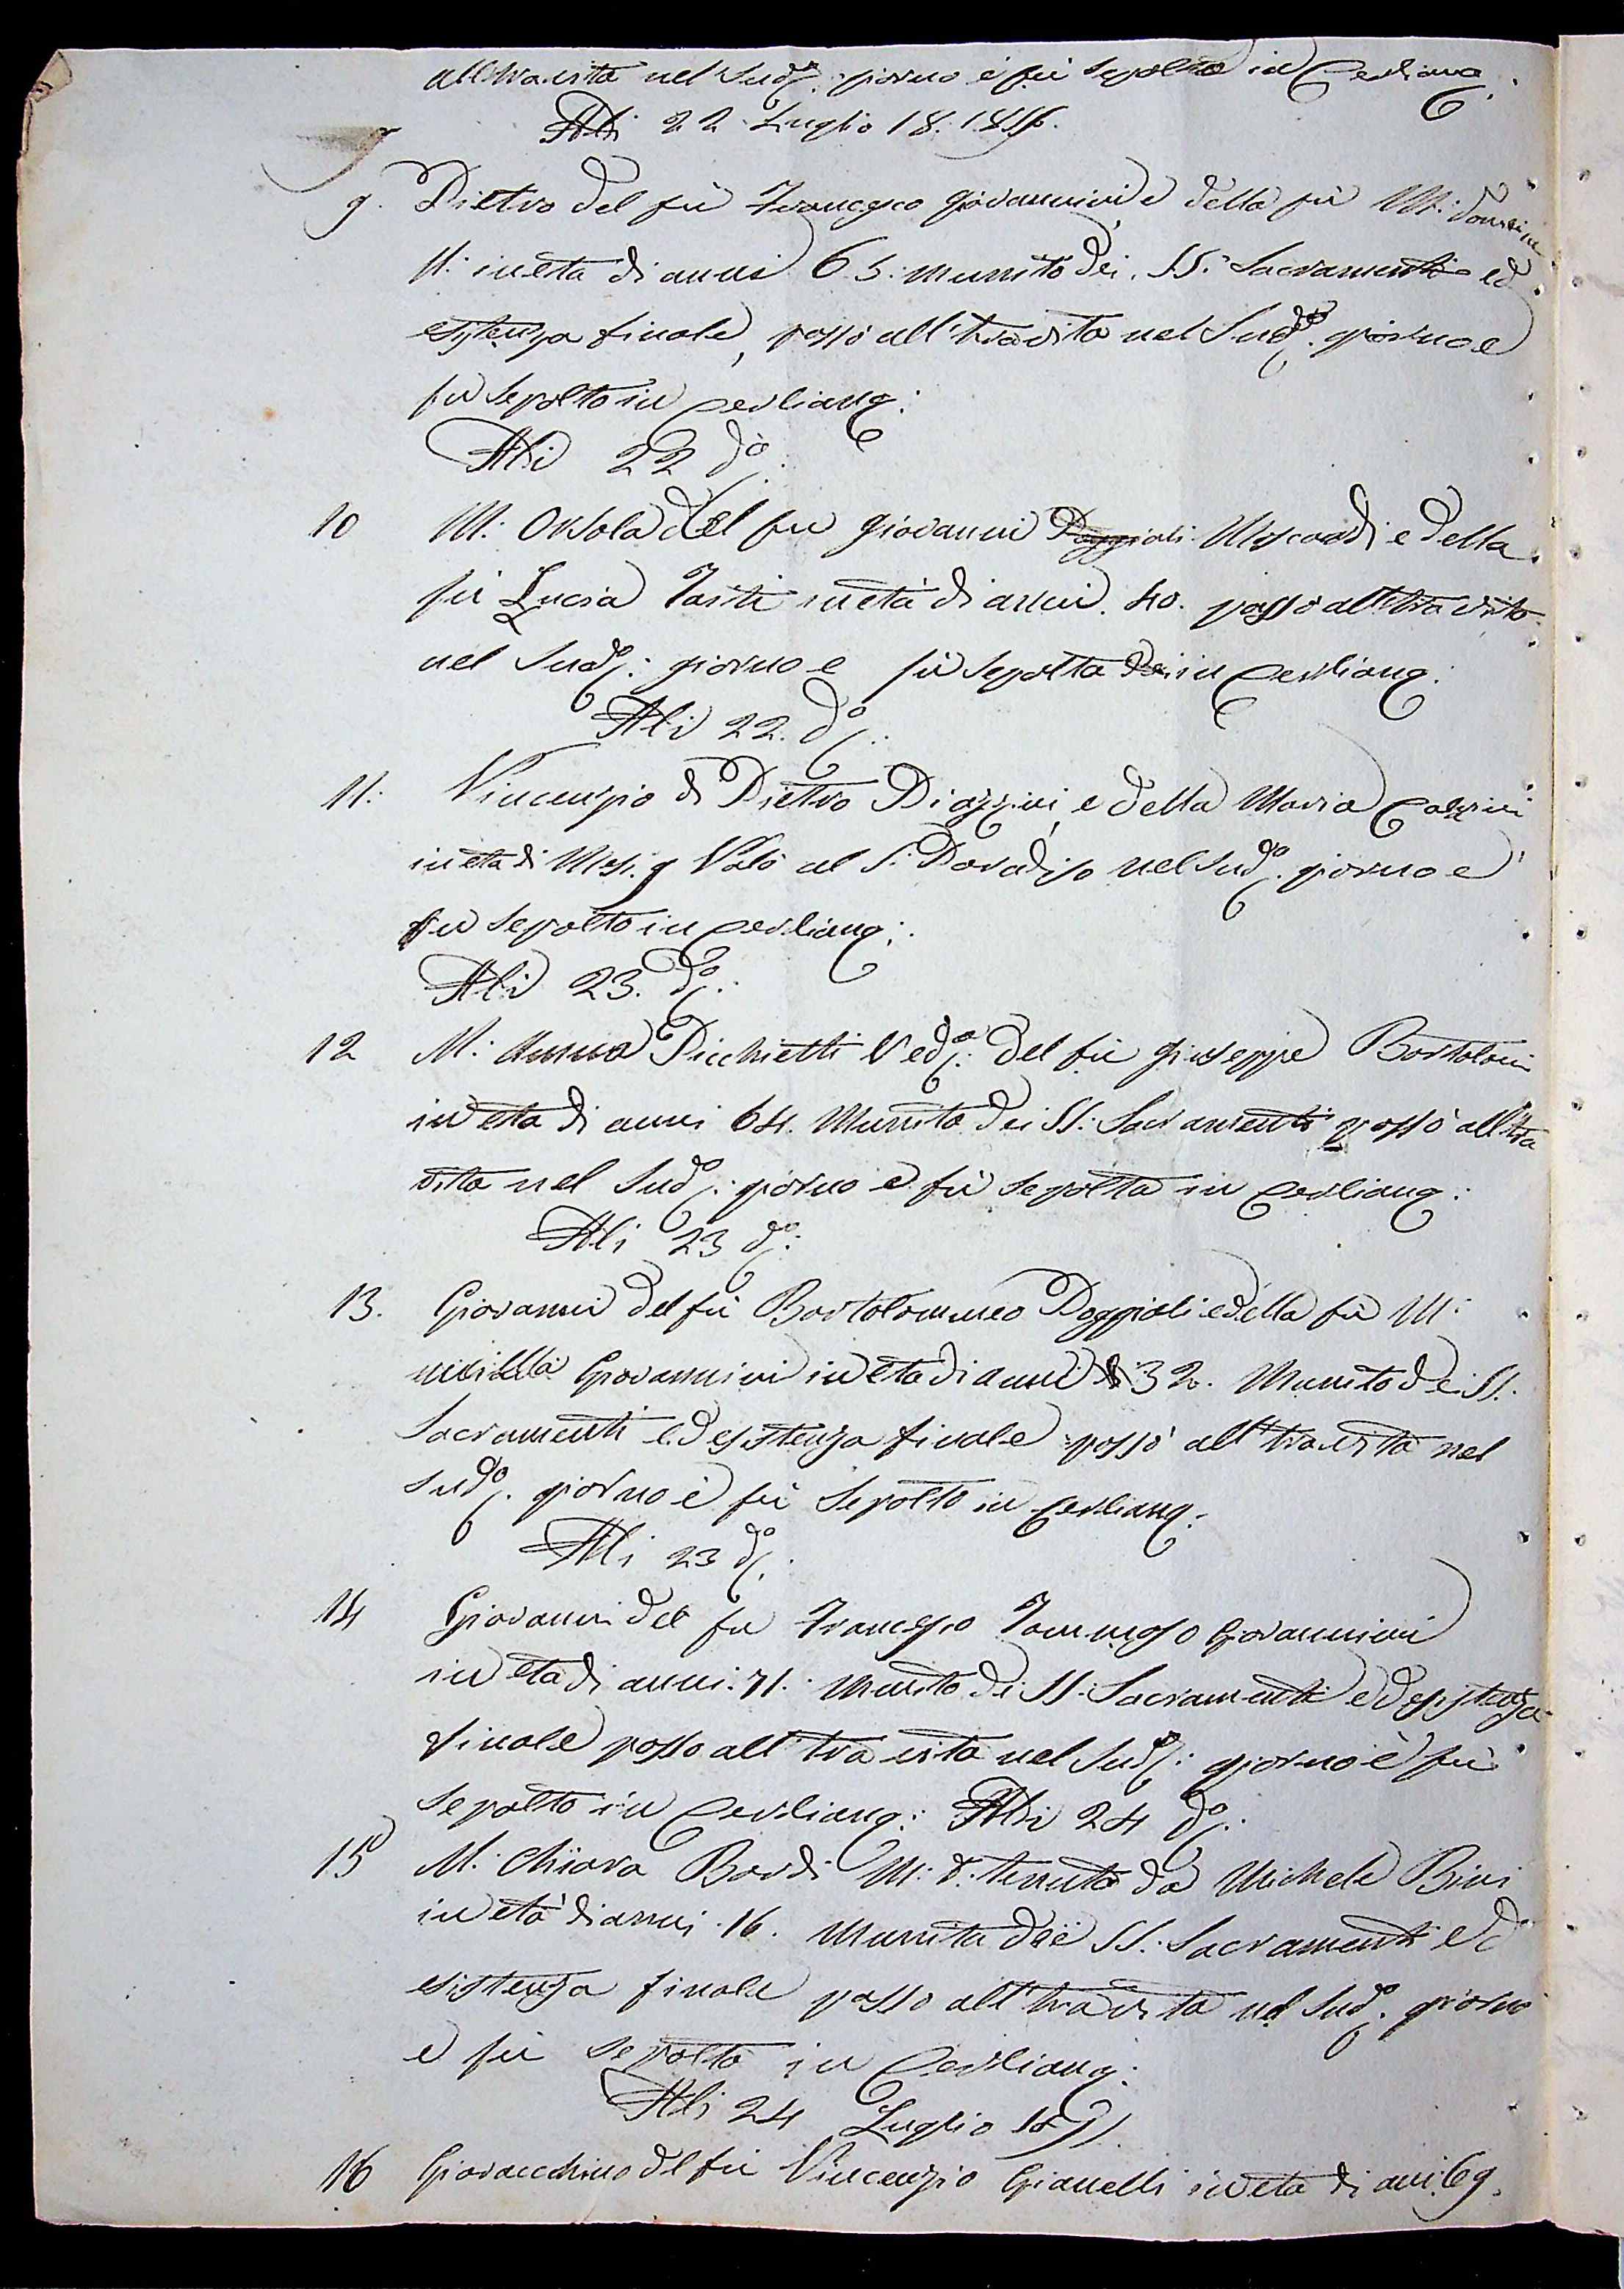 all'tra vita nel Sudo: giorno e fù Sepolta in Cerliana:
Alli 22 Luglio 18: 1855.
9. Pietro del fù Francesco Giovannini e della fù M: Domenica
N: in età di anni 65: munito dei SS: Sacramenti ed
esistenza finale, passò all'tra vita nel Sudo: giorno e
fu Sepolto in Cerliana:
Alli 22 do:
10 M: Orsola del fu Giovanni Poggioli Moscardi e della
fù Lucia Tasti in età di anni. 40. passò all'tra vita
nel Sudo: giorno e fù Sepolta in Cerliana:
Alli 22. do:
11: Vincenzio di Pietro Piazzini e della Maria
in età di Mesi. 9 Volò al S: Paradiso nel Sudo: giorno e
fu Sepolto in Cerliana:
Alli 23. do:
12 M: Anna Picchietti Veda: del fù Giuseppe Bortolomi
in eta di anni 64. Munita dei SS: Sacramenti passò all'tra
vita nel Sudo: giorno e fù Sepolta in Cerliana:
Alli 23 do:
13. Giovanni del fù Bortolommeo Poggioli e della fù M:
Giovannini in eta di anni 32. Munito dei SS.
Sacramenti ed esistenza finale passò all'tra vita nel
Sudo: giorno e fù Sepolto in Cerliana:
Alli 23 do:
14 Giovanni del fu Francesco Tommaso Giovannini
in eta di anni. 71. Munito dei SS: Sacramenti ed esistenza
finale passo all'tra vita nel Sudo: giorno e fù
Sepolto in Cerliana: Alli 24 do:
15 M: Chiara Bardi M: d: tenuta da Michele Bini
in età di anni. 16. Munita dei SS: Sacramenti ed
esistenza finale passo all'tra vita nel Sudo: giorno
e fù Sepolta in Cerliana:
Alli 24 Luglio 1855
16 Giovacchino del fù Vincenzio Gianelli in eta di ani. 69.